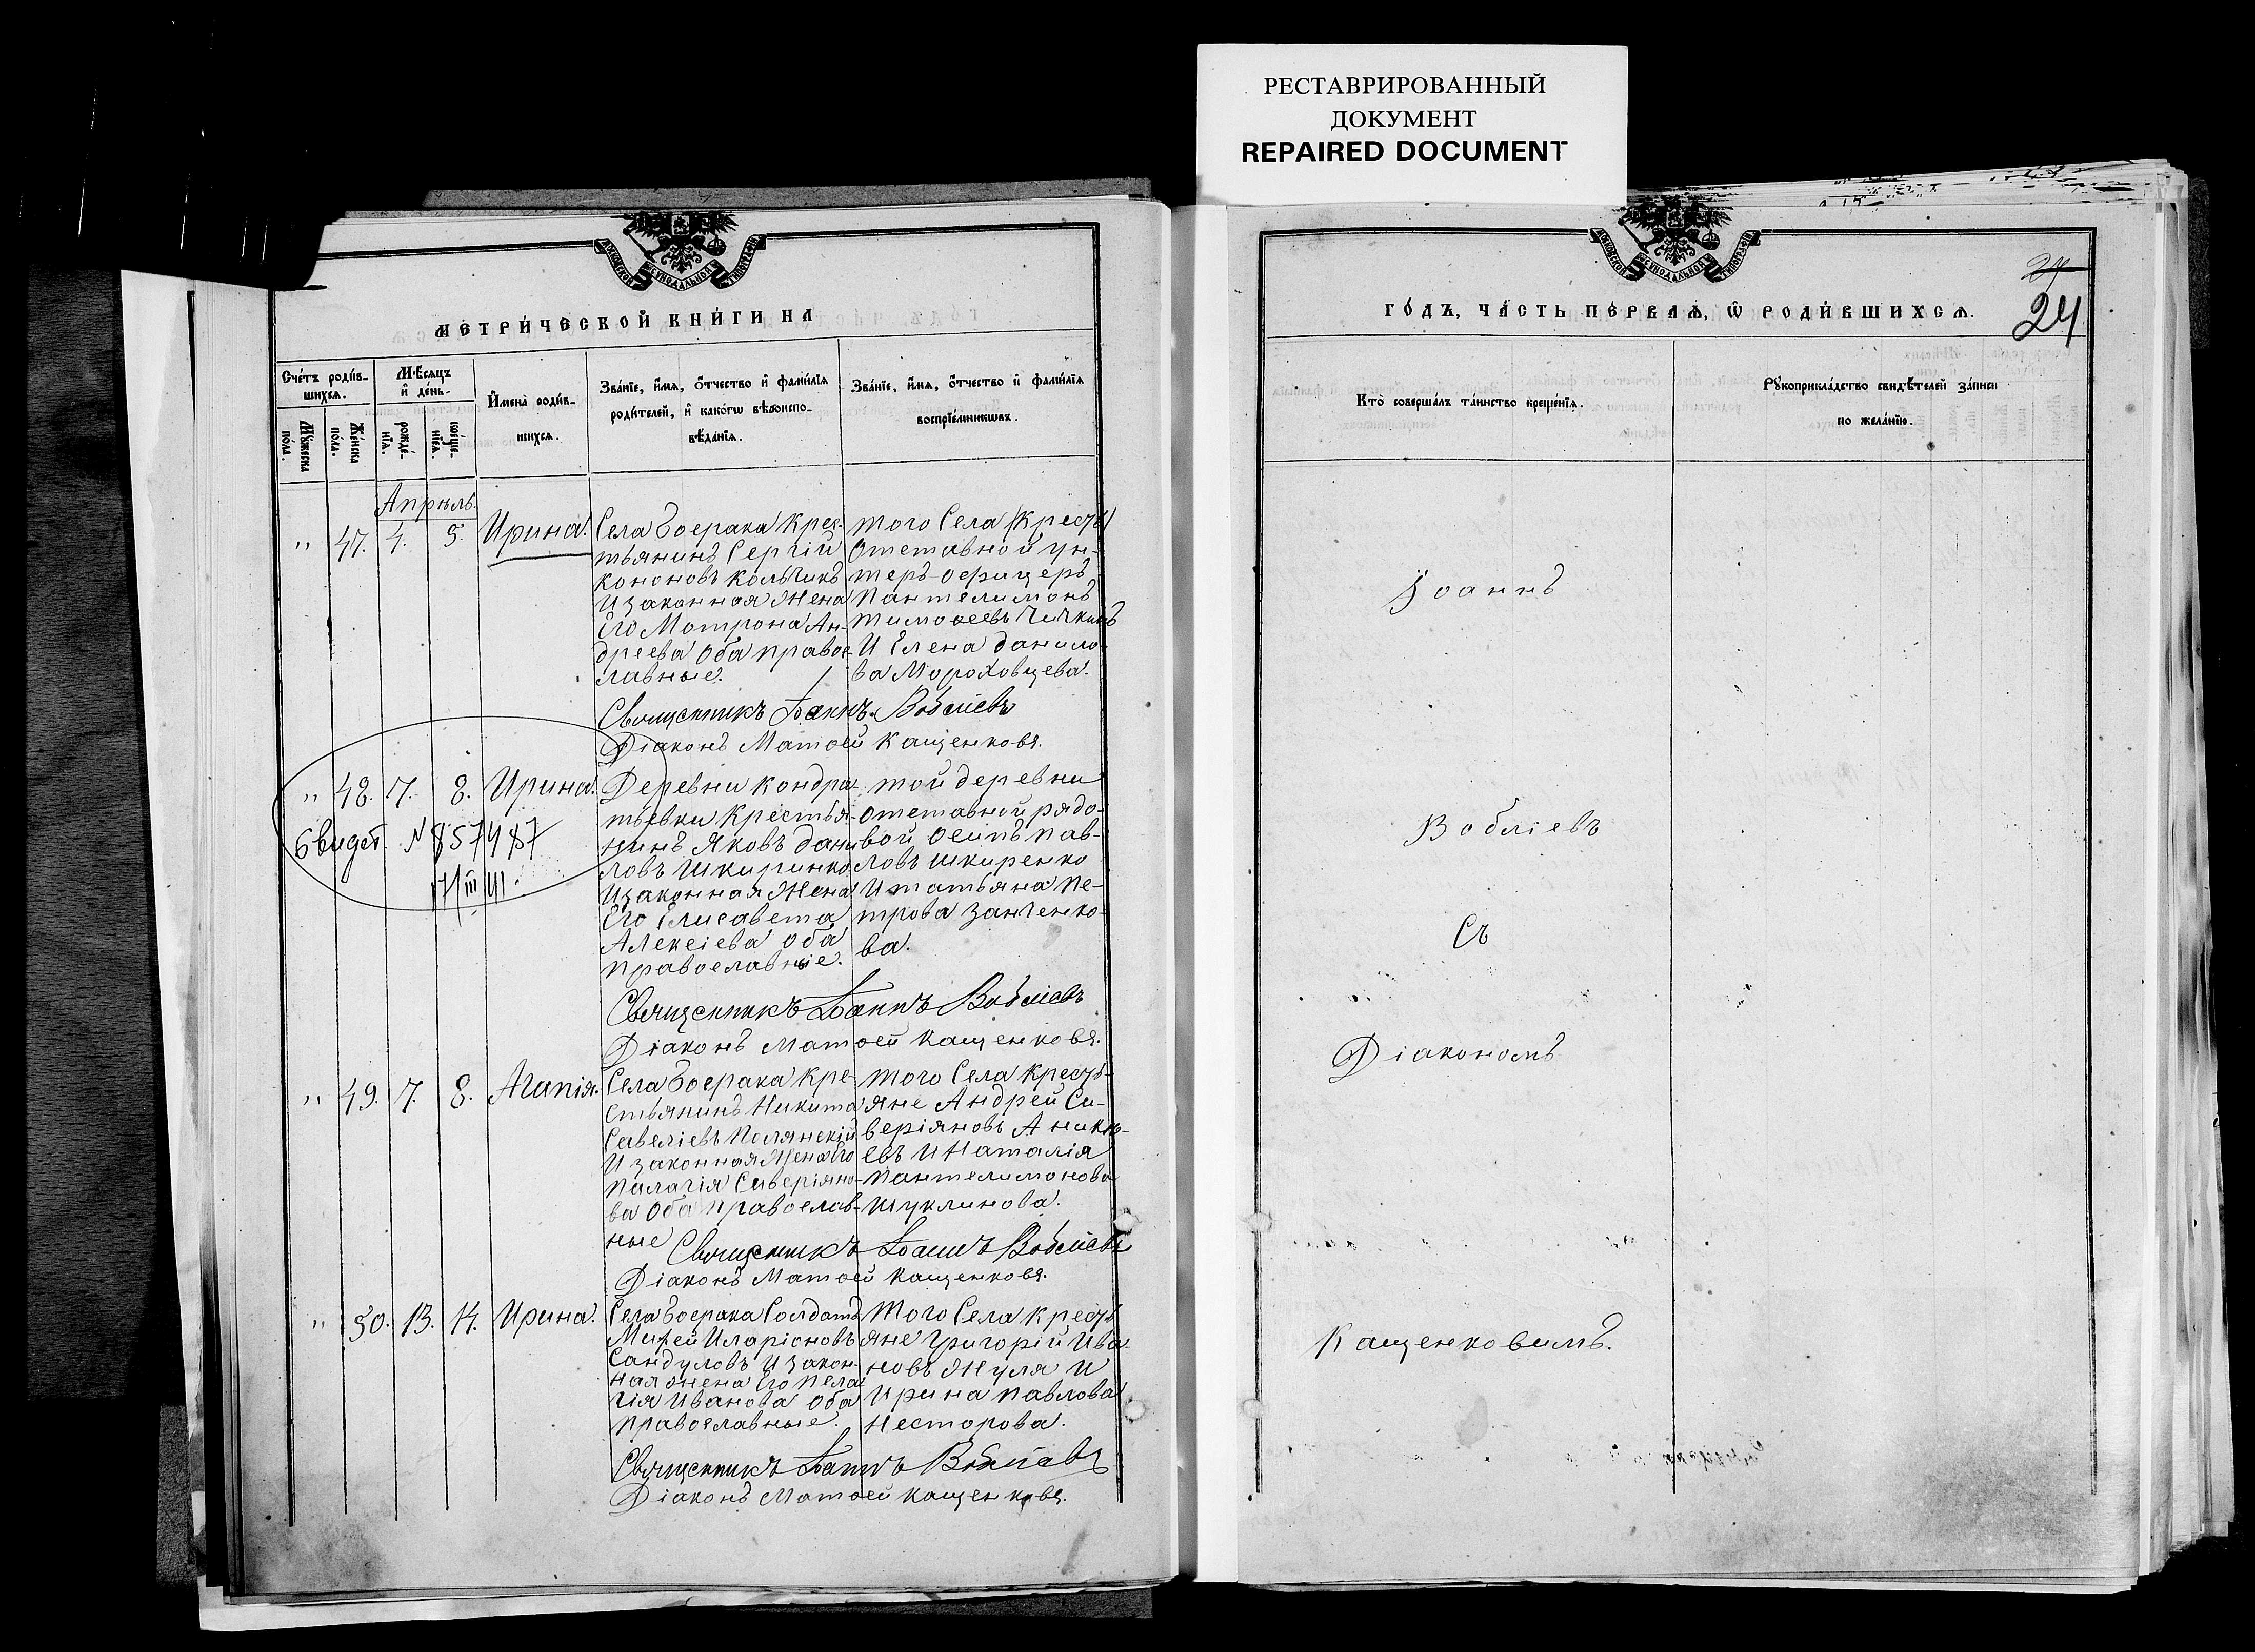 РЕСТАВРИРОВАННЫЙ
ДОКУМЕНТ
REPAIRED DOCUMENT
МОСКОВСКОЙ СѴНОДАЛЬНОЙ ТИПОГРАФІИ
МЕТРИ́ЧЕСКОЙ КНИ́ГИ НА
Сче́тъ роди́в-
шихсѧ.
Мѣсѧцъ
и҆ де́нь.
Мꙋ́жеска
пола.
Же́нска
по́ла.
рожде́-
нїѧ.
креще́-
нїѧ.
И҆мена̀ роди́в-
шихсѧ.
Зва́нїе, и҆́мѧ, ѻ҆́тчество и҆ фами́лїѧ
роди́телей, и҆ како́гѡ вѣроиспо-
вѣ́данїѧ.
Зва́нїе, и҆́мѧ, ѻ҆́тчество и҆ фами́лїѧ
воспрїе́мникѡвъ.
Апрѣль.
" 47. 4. 5. Ирина.
Села Боерака Крес-
тьянинъ Сергій
Кононовъ Кольчикъ
И законная Жена
Его Мотрона Ан-
дреева Оба правос-
лавные.
того Села (Крестъ)
Отставной ун-
теръ-офицеръ
Пантелимонъ
Тимофеевъ
И Елена Данило-
ва Мороховцева.
Священникъ Іоаннъ Воблїевъ
Діаконъ Матфей Кащенковъ.
" 48. 7. 8. Ирина.
Свидет. № 857487
17/III 41.
Деревни Кондра-
тьевки Крестья-
нинъ Яковъ Дани-
ловъ Шкиринко
И законная Жена
Его Елисавета
Алексіева оба
православніе.
той деревни
отставной рядо-
вой Осипъ Пав-
ловъ Шкиренко
И Татьяна Пе-
трова Занченко-
ва.
Священникъ Іоаннъ Воблїевъ
Діаконъ Матфей Кащенковъ.
" 49. 7. 8. Агапія.
Села Боерака Кре-
стьянинъ Никита
Савеліевъ Полянскій
И законная Жена Его
Палагія Сиверіяно-
ва Оба Православ-
ные
того Села Кресть-
яне Андрей Си-
веріяновъ Аникѣ-
евъ И Наталія
Пантелимонова
Шуклинова.
Священникъ Іоаннъ Воблїевъ
Діаконъ Матфей Кащенковъ.
" 50. 13. 14. Ирина.
Села Боерака Солдатъ
Михей Иларіоновъ
Сандуловъ И закон-
ная жена Его Пела-
гія Иванова Оба
православные.
Того Села Кресть
яне Григорій Ива-
новъ Жуля И
Ирина Павлова
Несторова.
Священникъ Іоаннъ Воблїевъ
Діаконъ Матфей Кащенковъ.
МОСКОВСКОЙ СѴНОДАЛЬНОЙ ТИПОГРАФІИ
24
24
ГО́ДЪ, ЧА́СТЬ ПЕ́РВАѦ, Ѽ РОДИ́ВШИХСѦ.
Кто̀ соверша́лъ та́инство креще́нїѧ.
Рꙋкоприкла́дство свидѣ́телей за́писи
по жела́нїю.
Іоаннъ
Воблїевъ
Съ
Діакономъ
Кащенковимъ.